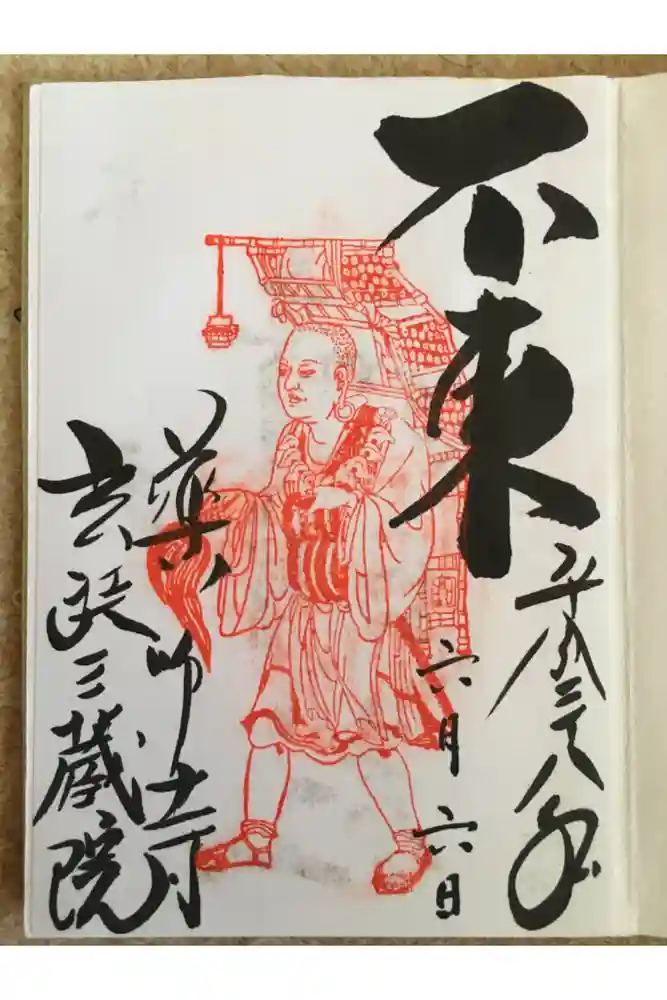 不東
平成二十八年
六月六日
薬師寺
玄奘三蔵院